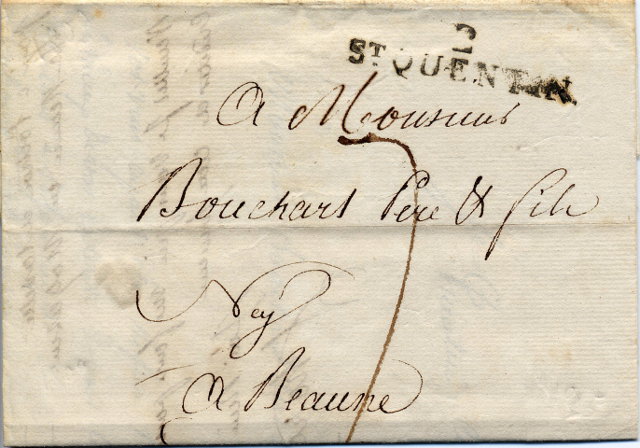 2
ST QUENTIN
A Monsieur
Bouchart Père & fils
Neg
a Beaune
7